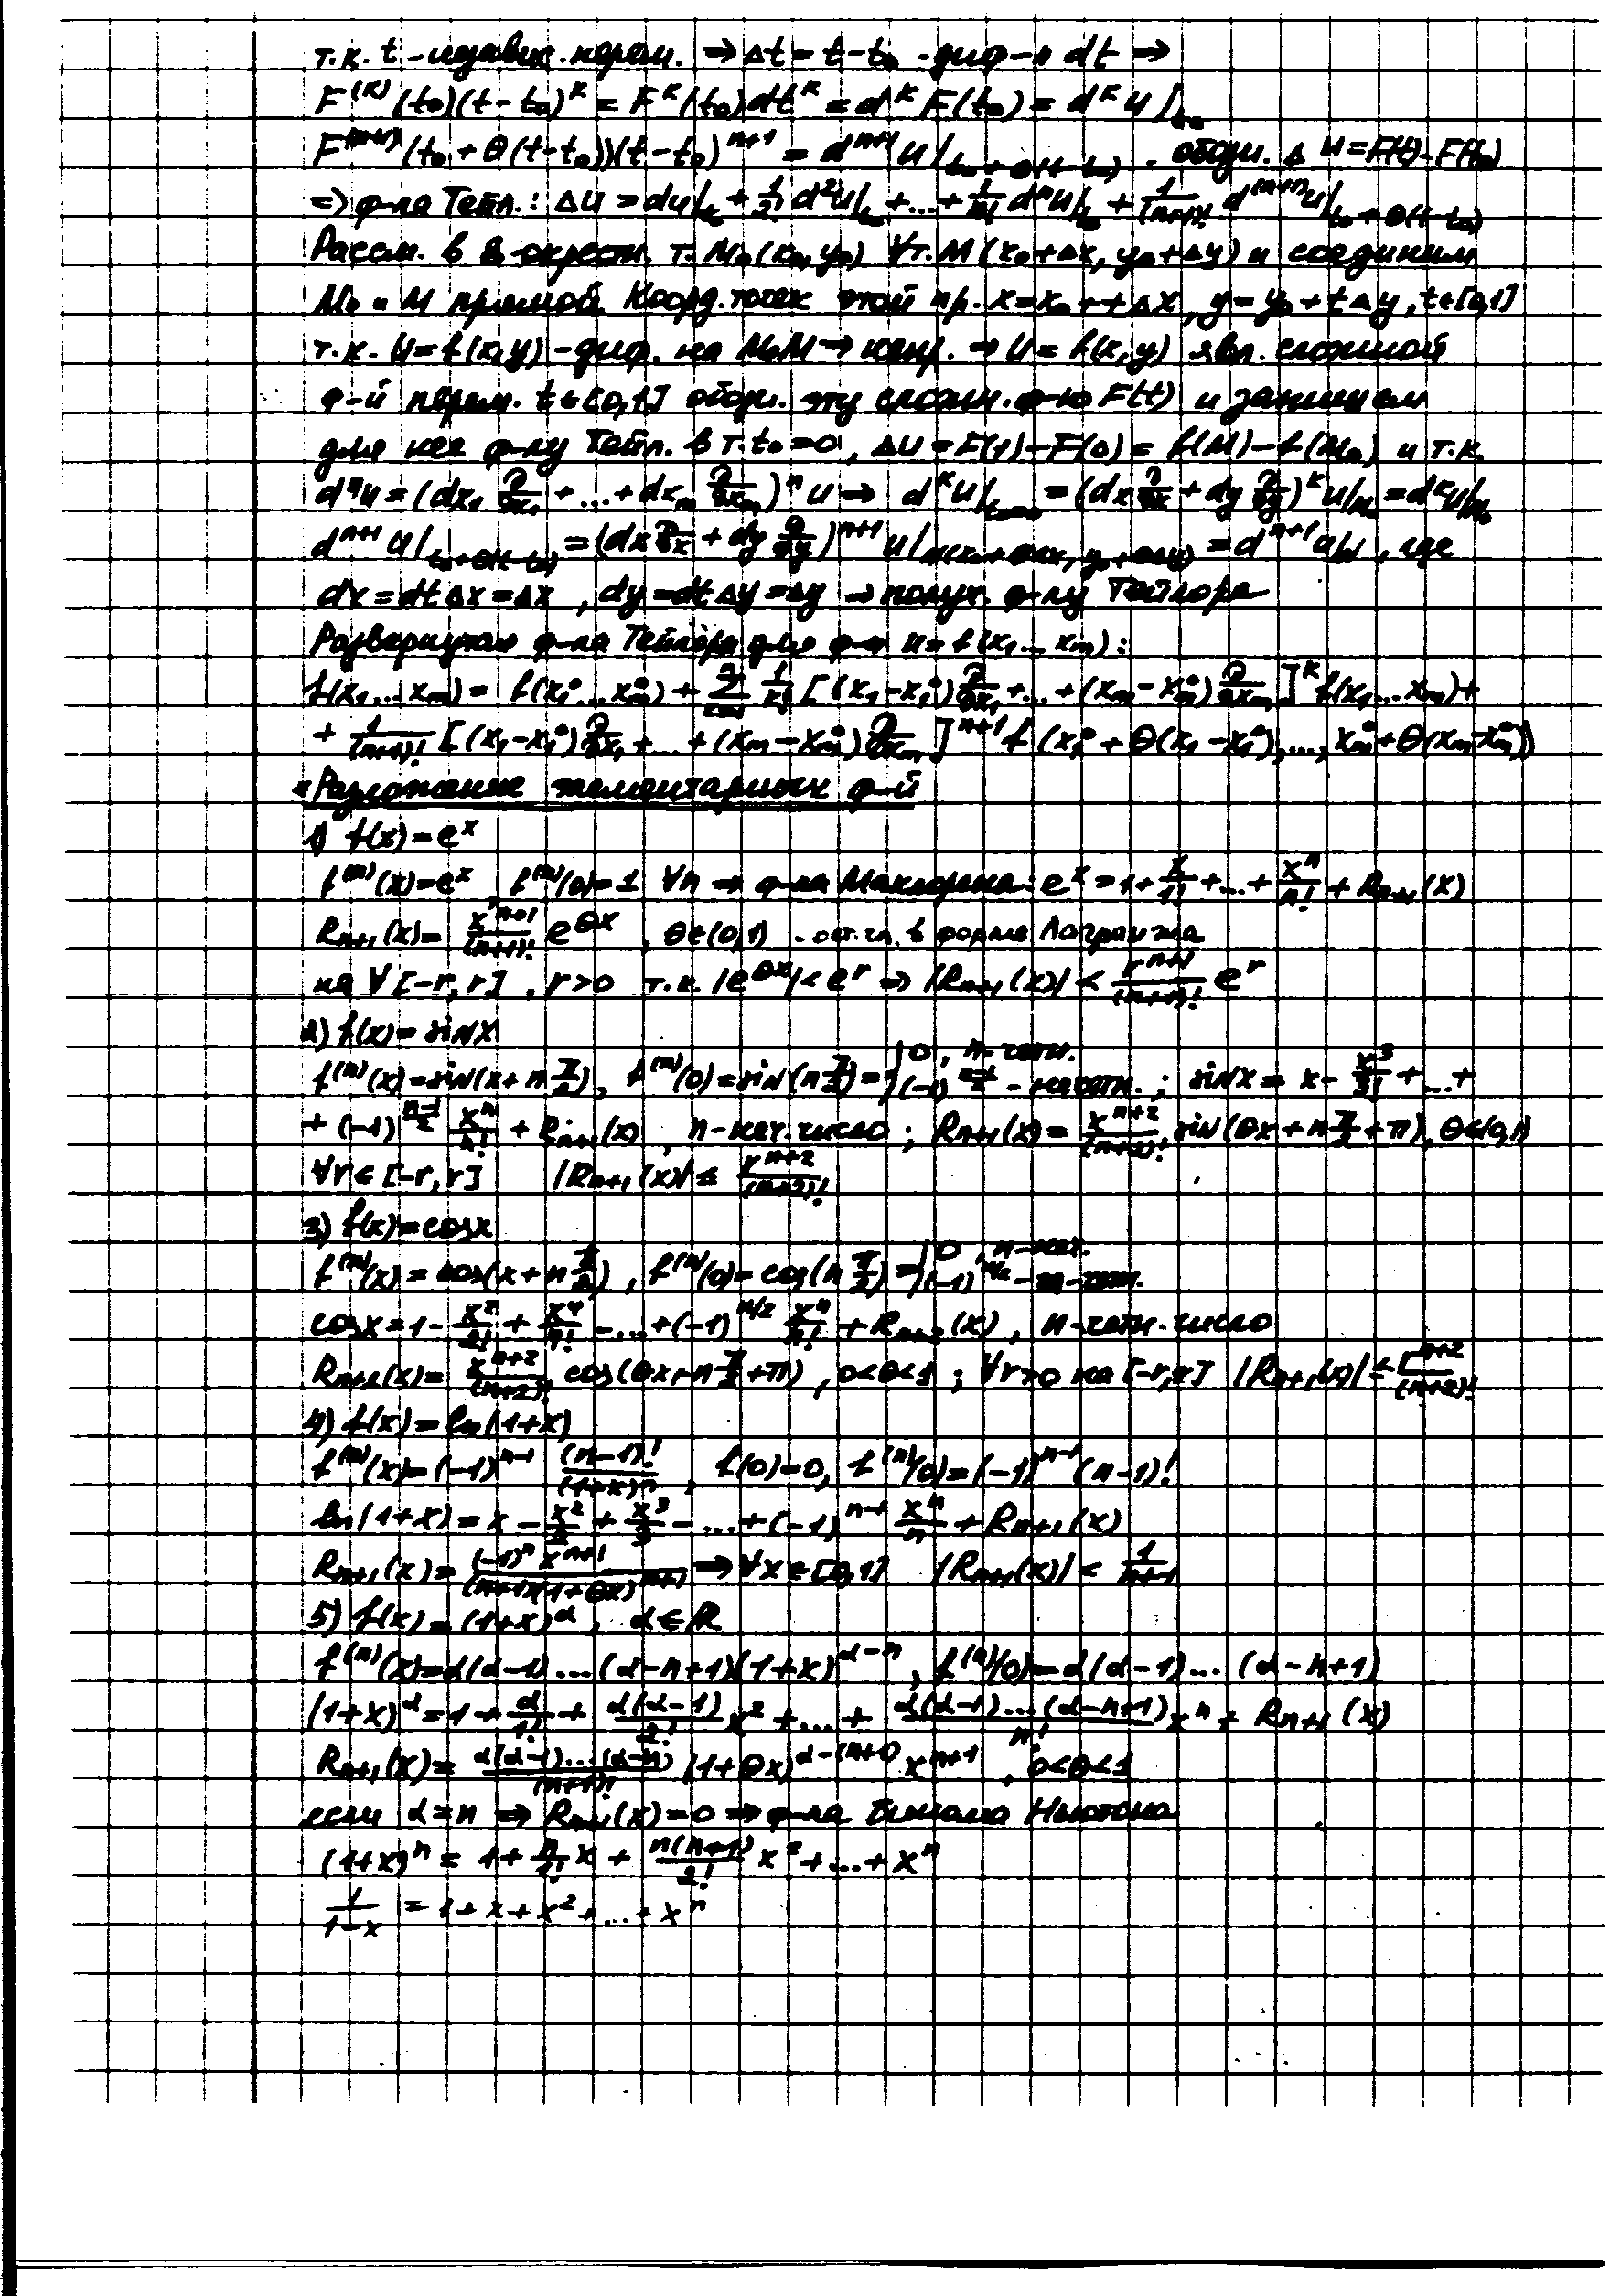 т.к. t - независ. перем. ⇒ Δt = t - t₀ - диф-л dt ⇒
F^(k)(t₀)(t-t₀)^k = F^k(t₀)dt^k = d^k F(t₀) = d^k u|_t₀
F^(n+1)(t₀+θ(t-t₀))(t-t₀)^(n+1) = d^(n+1) u|_t₀+θ(t-t₀) . обозн. Δu = F(t)-F(t₀)
⇒ ф-ла Тейл.: Δu = du|_t₀ + 1/2! d²u|_t₀ + ... + 1/n! dⁿu|_t₀ + 1/(n+1)! d^(n+1) u|_t₀+θ(t-t₀)
Рассм. в окрестн. т. M₀(x₀,y₀) ∀т. M(x₀+Δx, y₀+Δy) и соединим
M₀ и M прямой. Коорд. точек этой пр. x=x₀+tΔx, y=y₀+tΔy, t∈[0,1]
т.к. u=f(x,y) - диф. на M₀M ⇒ непр. ⇒ u=f(x,y) явл. сложной
ф-й перем. t∈[0,1] обозн. эту сложн. ф-ю F(t) и запишем
для нее ф-лу Тейл. в т. t₀=0, Δu = F(1)-F(0) = f(M)-f(M₀) и т.к.
dⁿu = (dx₁ ∂/∂x₁ + ... + dx_m ∂/∂x_m)ⁿ u ⇒ d^k u|_t₀=0 = (dx ∂/∂x + dy ∂/∂y)^k u|_M₀ = d^k u|_M₀
d^(n+1) u|_t₀+θ(t-t₀) = (dx ∂/∂x + dy ∂/∂y)^(n+1) u|_N(x₀+θΔx, y₀+θΔy) = d^(n+1) u|_N, где
dx = dtΔx = Δx, dy = dtΔy = Δy ⇒ получ. ф-лу Тейлора
Развернутая ф-ла Тейлора для ф-и u = f(x₁...x_m):
f(x₁...x_m) = f(x₁⁰...x_m⁰) + Σ_{k=1}^n 1/k! [(x₁-x₁⁰) ∂/∂x₁ + ... + (x_m-x_m⁰) ∂/∂x_m]^k f(x₁...x_m) +
+ 1/(n+1)! [(x₁-x₁⁰) ∂/∂x₁ + ... + (x_m-x_m⁰) ∂/∂x_m]^(n+1) f(x₁⁰+θ(x₁-x₁⁰),..., x_m⁰+θ(x_m-x_m⁰))
* Разложение элементарных ф-й
1) f(x) = e^x
f^(n)(x)=e^x, f^(n)(0)=1 ∀n ⇒ ф-ла Маклорена: e^x = 1+ x/1! + ... + xⁿ/n! + R_{n+1}(x)
R_{n+1}(x) = x^(n+1)/(n+1)! e^(θx), θ∈(0,1) - ост. чл. в форме Лагранжа
на ∀[-r,r], r>0 т.к. |e^(θx)|<e^r ⇒ |R_{n+1}(x)| < r^(n+1)/(n+1)! e^r
2) f(x) = sin x
f^(n)(x) = sin(x+n π/2), f^(n)(0) = sin(n π/2) = { 0, n-четн. ; (-1)^((n-1)/2) - нечетн. ; sin x = x - x³/3! + ... +
+ (-1)^((n-1)/2) xⁿ/n! + R_{n+1}(x), n-неч. число ; R_{n+1}(x) = x^(n+2)/(n+2)! sin(θx+n π/2+π), θ∈(0,1)
∀r∈[-r,r] |R_{n+1}(x)| ≤ r^(n+2)/(n+2)!
3) f(x) = cos x
f^(n)(x) = cos(x+n π/2), f^(n)(0) = cos(n π/2) = { 0, n-неч. ; (-1)^(n/2) - n-четн.
cos x = 1 - x²/2! + x⁴/n! - ... + (-1)^(n/2) xⁿ/n! + R_{n+2}(x), n-четн. число
R_{n+2}(x) = x^(n+2)/(n+2)! cos(θx+n π/2+π), 0<θ<1 ; ∀r>0 на [-r,r] |R_{n+1}(x)| ≤ r^(n+2)/(n+2)!
4) f(x) = ln(1+x)
f^(n)(x) = (-1)^(n-1) (n-1)!/(1+x)ⁿ, f(0)=0, f^(n)(0) = (-1)^(n-1)(n-1)!
ln(1+x) = x - x²/2 + x³/3 - ... + (-1)^(n-1) xⁿ/n + R_{n+1}(x)
R_{n+1}(x) = (-1)ⁿ x^(n+1)/((n+1)(1+θx)^(n+1)) ⇒ ∀x∈[0,1] |R_{n+1}(x)| < 1/(n+1)
5) f(x) = (1+x)^α, α∈R
f^(n)(x) = α(α-1)...(α-n+1)(1+x)^(α-n), f^(n)(0) = α(α-1)...(α-n+1)
(1+x)^α = 1 + α/1! + α(α-1)/2! x² + ... + α(α-1)...(α-n+1)/n! xⁿ + R_{n+1}(x)
R_{n+1}(x) = α(α-1)...(α-n)/(n+1)! (1+θx)^(α-(n+1)) x^(n+1), 0<θ<1
если α=n ⇒ R_{n+1}(x)=0 ⇒ ф-ла Бинома Ньютона
(1+x)ⁿ = 1 + n/1! x + n(n+1)/2! x² + ... + xⁿ
1/(1-x) = 1+x+x²+...+xⁿ